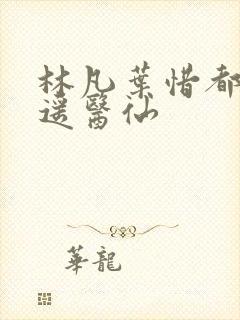 林凡葉惜都
遥醫仙
華龍